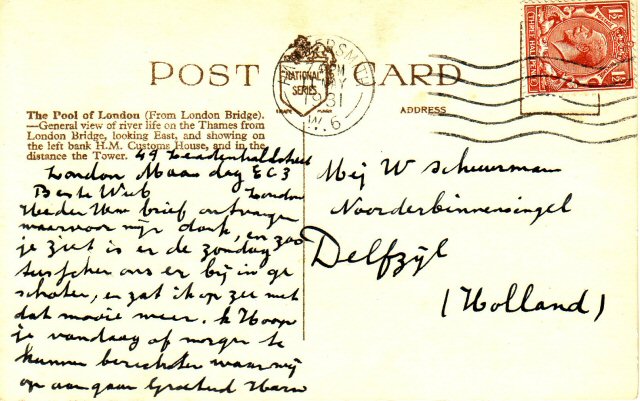 POST CARD
HAMMERSMITH
MY
1931
W.6
NATIONAL
SERIES
TRADE MARK
1½ 1½
ADDRESS
The Pool of London (From London Bridge).
—General view of river life on the Thames from
London Bridge, looking East, and showing on
the left bank H.M. Customs House, and in the
distance the Tower.
49 Leadenhallstreet
London Maandag EC3
Beste Wub London
Heden Uw brief ontvangen
waarvoor mijn dank, en zoo
je ziet is er de zondag
tusschen ons er bij in ge
schoten, en zat ik op zee met
dat mooie weer. Ik Hoop
je vandaag of morgen te
kunnen berichten waar wij
op aan gaan Groetend Harm
Mej W Scheurman
Noorderbinnensingel
Delfzijl
(Holland)